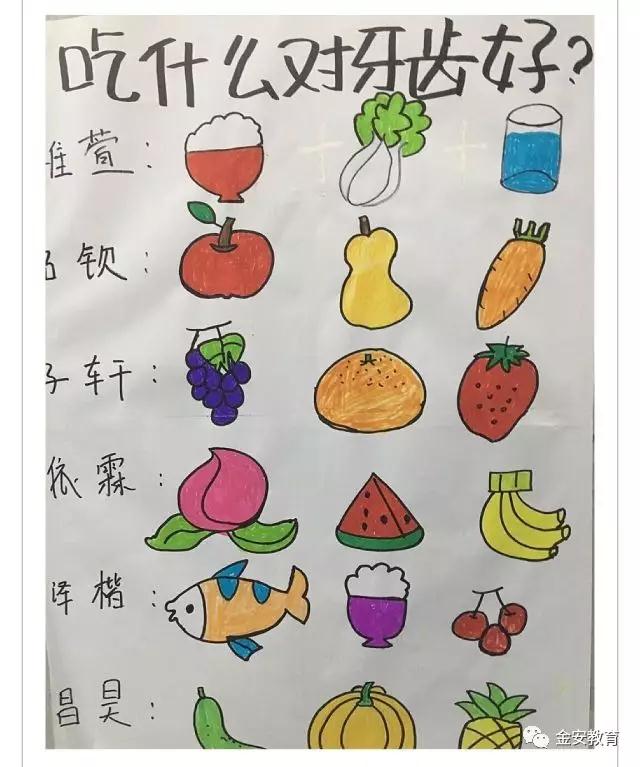 吃什么对牙齿好?
萱：
：
子轩：
依霖：
泽楷：
昌昊：
金安教育